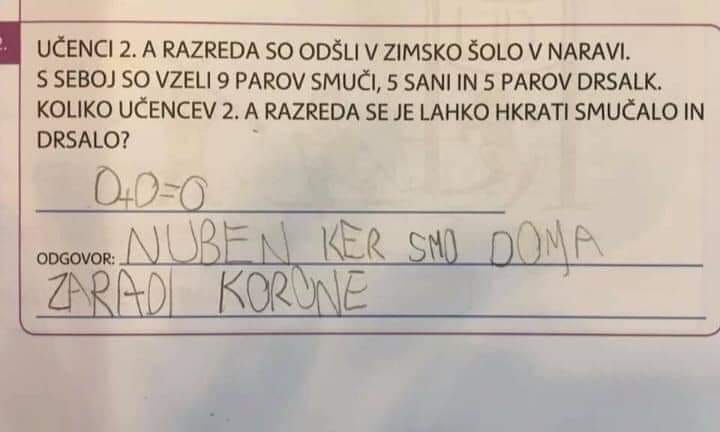 2.
UČENCI 2. A RAZREDA SO ODŠLI V ZIMSKO ŠOLO V NARAVI.
S SEBOJ SO VZELI 9 PAROV SMUČI, 5 SANI IN 5 PAROV DRSALK.
KOLIKO UČENCEV 2. A RAZREDA SE JE LAHKO HKRATI SMUČALO IN
DRSALO?
0+0=0
ODGOVOR: NUBEN KER SMO DOMA
ZARADI KORONE